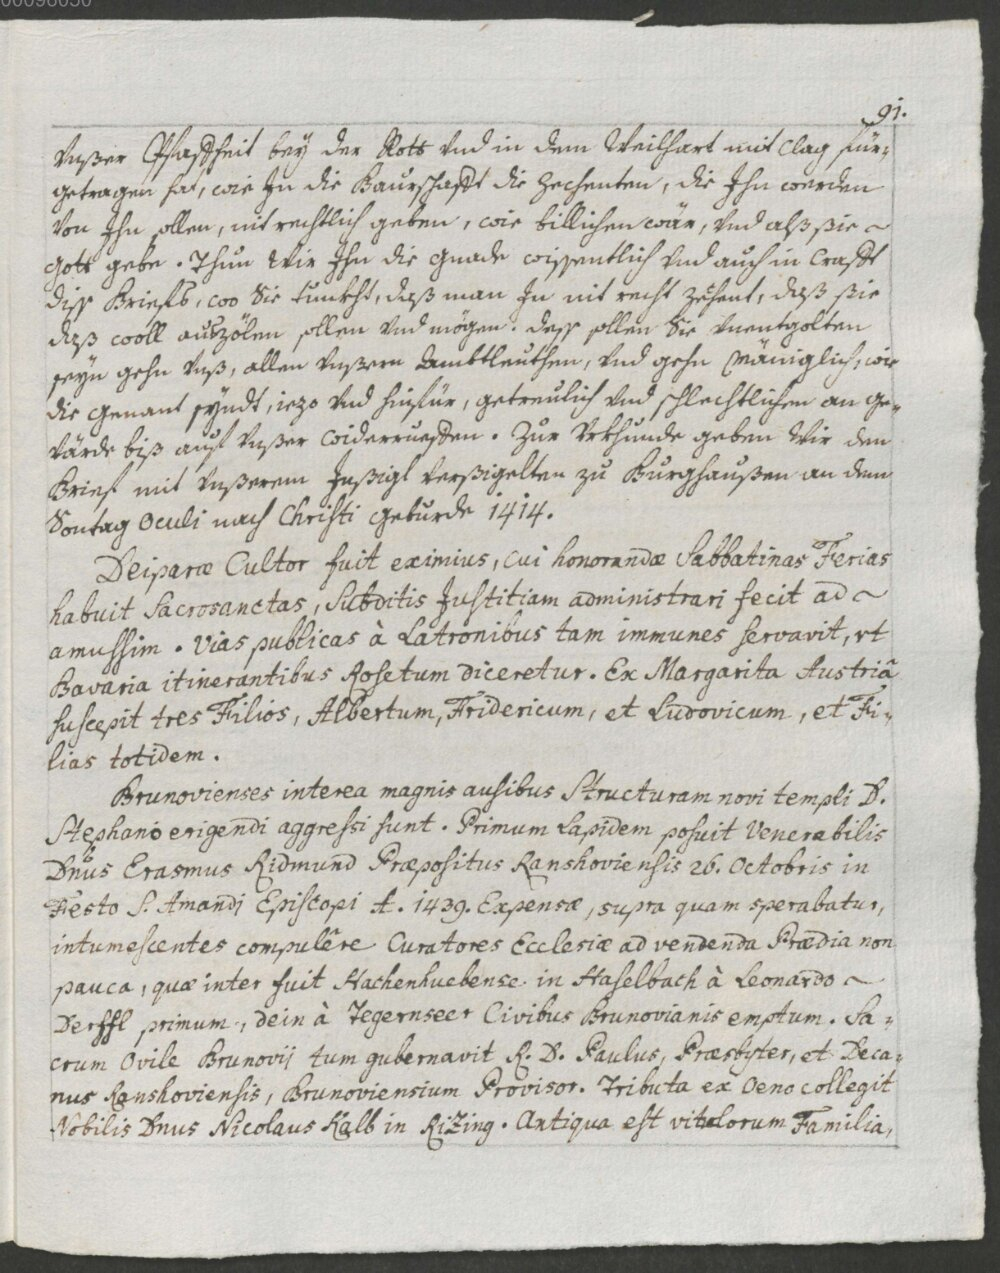 00098050
91.
Vnßer Pfaffheit bey der Rott vnd in dem Weilhart mit Clag für-
getragen hat, wie Jn die Baurschafft die Zechenten, die Jhn werden
von Jhn sollen, nit rechtlich geben, wie billichen wär, vnd alß sie ~
Gott gebe. Thun wir Jhn die gnade wissentlich vnd auch in Crafft
diss Briefs, wo Sie tunckht, daß man Jn nit recht Zehent, daß sie
daß woll auszölen sollen vnd mögen. dess sollen Sie vnentgolten
seyn gehn vnß, allen vnßern Ambtleuthen, vnd gehn Mäniglich, wie
die genant syndt, iezo vnd hinfür, getreulich vnd schlechtlichen an ge-
värde biß auf vnßer widerrueffen. Zur Vrkhunde geben wir den
Brief mit vnßerem Jnßigl verßigelten zu Burghaußen an dem
Sontag Oculi nach Christi geburde 1414.
Deiparæ Cultor fuit eximius, cui honorandæ Sabbatinas Ferias
habuit Sacrosanctas, Subditis Justitiam administrari fecit ad ~
amussim. Vias publicas à Latronibus tam immunes servavit, vt
Bavaria itinerantibus Rosetum diceretur. Ex Margarita Austriâ
suscepit tres Filios, Albertum, Fridericum, et Ludovicum, et Fi-
lias totidem.
Brunovienses interea magnis ausibus Structuram novi templi D.
Stephano erigendi aggressi sunt. Primum Lapidem posuit Venerabilis
Dnus Erasmus Ridmund Præpositus Ranshoviensis 26. Octobris in
Festo S. Amandi Episcopi A. 1439. Expensæ, supra quam sperabatur,
intumescentes compulêre Curatores Ecclesiæ ad vendenda Prædia non
pauca, quæ inter fuit Hachenhuebense in Haselbach à Leonardo ~
Derffl primum, dein à Tegernseer Civibus Brunovianis emptum. Sa-
crum Ovile Brunovij tum gubernavit R. D. Paulus, Præsbyter, et Deca-
nus Ranshoviensis, Brunoviensium Provisor. Tributa ex Oeno collegit
Nobilis Dnus Nicolaus Kalb in Rizing. Antiqua est vitulorum Familia,